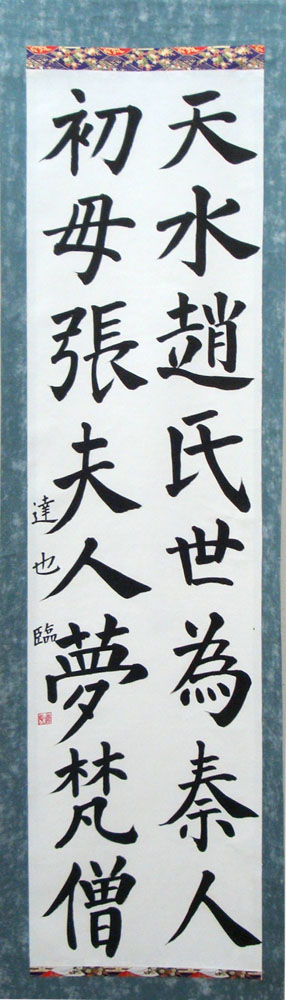 天水趙氏世為秦人
初母張夫人夢梵僧
達也臨